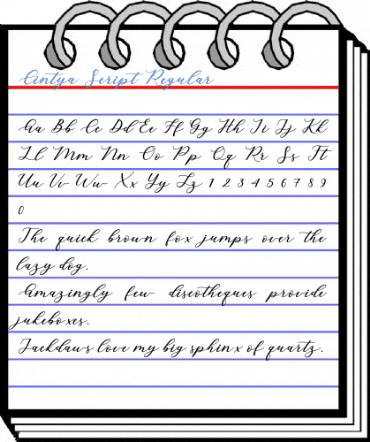 Cintya Script Regular
Aa Bb Cc Dd Ee Ff Gg Hh Ii Jj Kk
Ll Mm Nn Oo Pp Qq Rr Ss Tt
Uu Vv Ww Xx Yy Zz 1 2 3 4 5 6 7 8 9
0
The quick brown fox jumps over the
lazy dog.
Amazingly few discotheques provide
jukeboxes.
Jackdaws love my big sphinx of quartz.